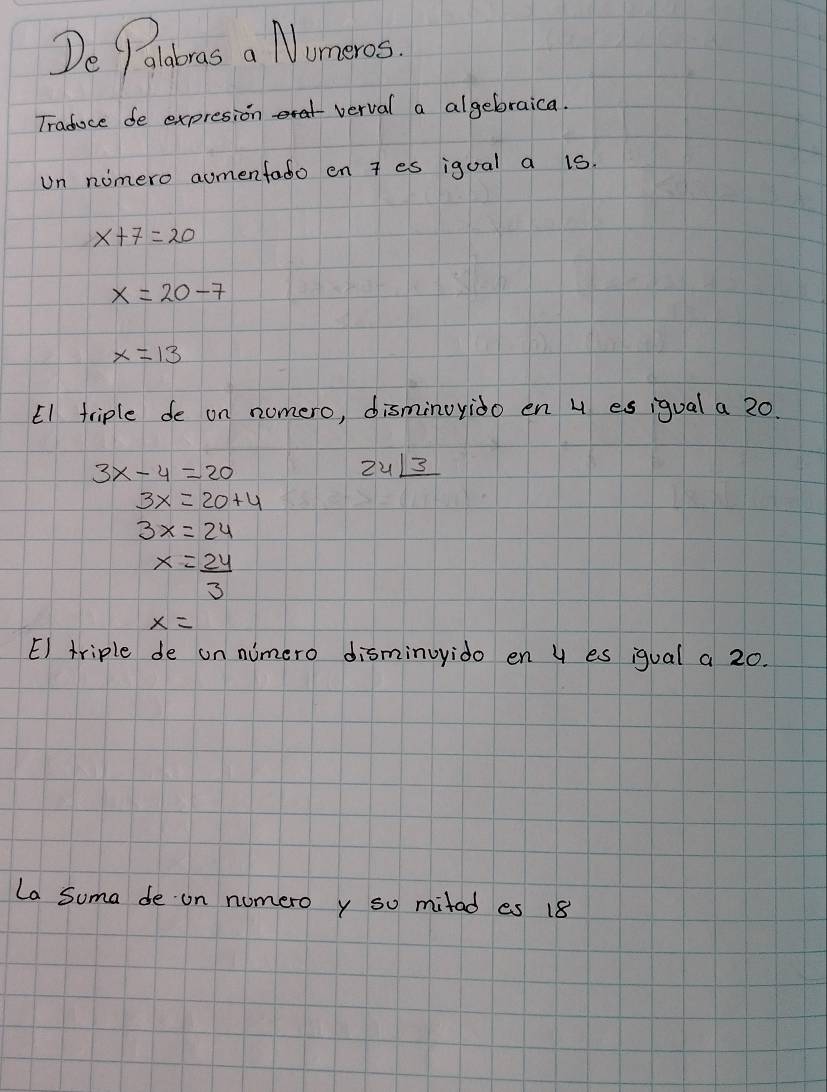 De Palabras a Numeros.
Traduce de expresión oral verval a algebraica.
Un número aumentado en 7 es igual a 15.
x+7=20
x=20-7
x=13
El triple de un numero, disminuyido en 4 es igual a 20.
3x-4=20
24|3
3x=20+4
3x=24
x=24/3
x=
El triple de un número disminuyido en 4 es igual a 20.
La suma de un numero y su mitad es 18